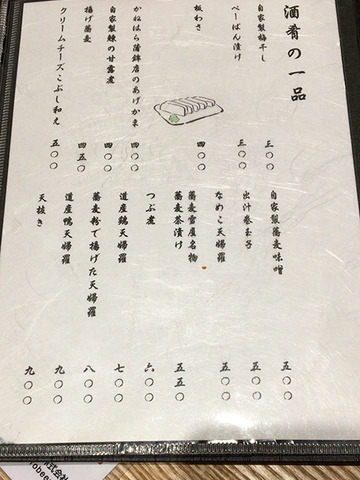 酒肴の一品
自家製梅干し 三〇〇
べーぱん漬け 三〇〇
板わさ 四〇〇
かねはら蒲鉾店のあげかま 四〇〇
自家製鰊の甘露煮 四〇〇
揚げ蕎麦 四五〇
クリームチーズこぶし和え 五〇〇
自家製蕎麦味噌 五〇〇
出汁巻玉子 五〇〇
なめこ天婦羅 五〇〇
蕎麦雪屋名物
蕎麦茶漬け 五五〇
つぶ煮 六〇〇
道産鶏天婦羅 七〇〇
蕎麦粉で揚げた天婦羅 八〇〇
道産鴨天婦羅 九〇〇
天抜き 九〇〇
株式会社